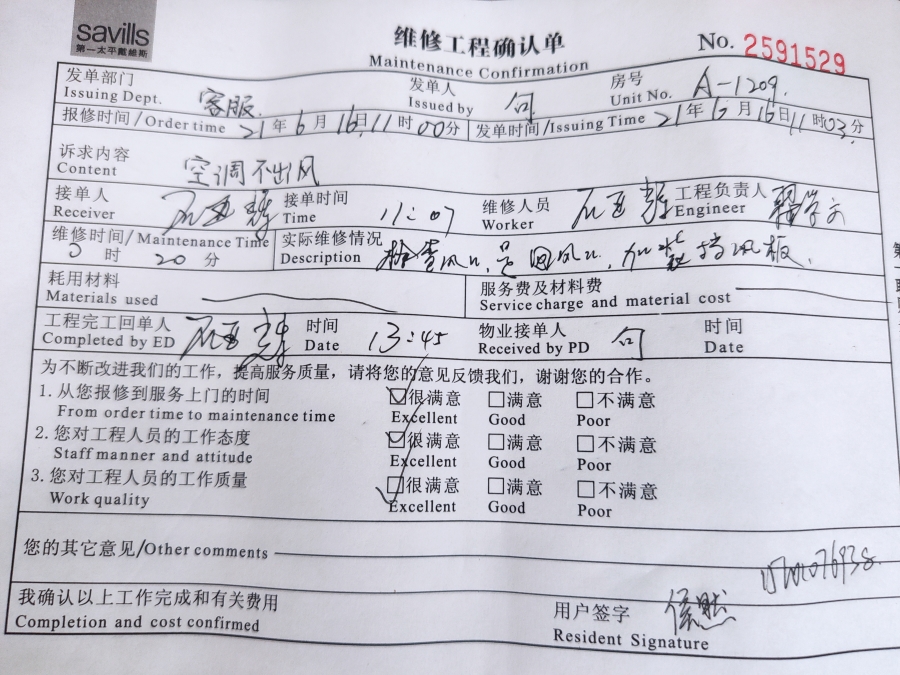 savills
第一太平戴維斯
维修工程确认单
Maintenance Confirmation
No. 2591529
发单部门 客服 发单人 房号 A-1209
Issuing Dept. Issued by Unit No.
报修时间/Order time 21年6月16日11时00分 发单时间/Issuing Time 21年6月16日11时03分
诉求内容 空调不出风
Content
接单人 接单时间 11:07 维修人员 工程负责人
Receiver Time Worker Engineer
维修时间/Maintenance Time 实际维修情况 检查风口,是回风口,加装挡风板.
时 20分 Description
耗用材料 服务费及材料费
Materials used Service charge and material cost
工程完工回单人 时间 13:45 物业接单人 时间
Completed by ED Date Received by PD Date
为不断改进我们的工作，提高服务质量，请将您的意见反馈我们，谢谢您的合作。
1. 从您报修到服务上门的时间 很满意 满意 不满意
From order time to maintenance time Excellent Good Poor
2. 您对工程人员的工作态度 很满意 满意 不满意
Staff manner and attitude Excellent Good Poor
3. 您对工程人员的工作质量 很满意 满意 不满意
Work quality Excellent Good Poor
您的其它意见/Other comments
我确认以上工作完成和有关费用 用户签字
Completion and cost confirmed Resident Signature